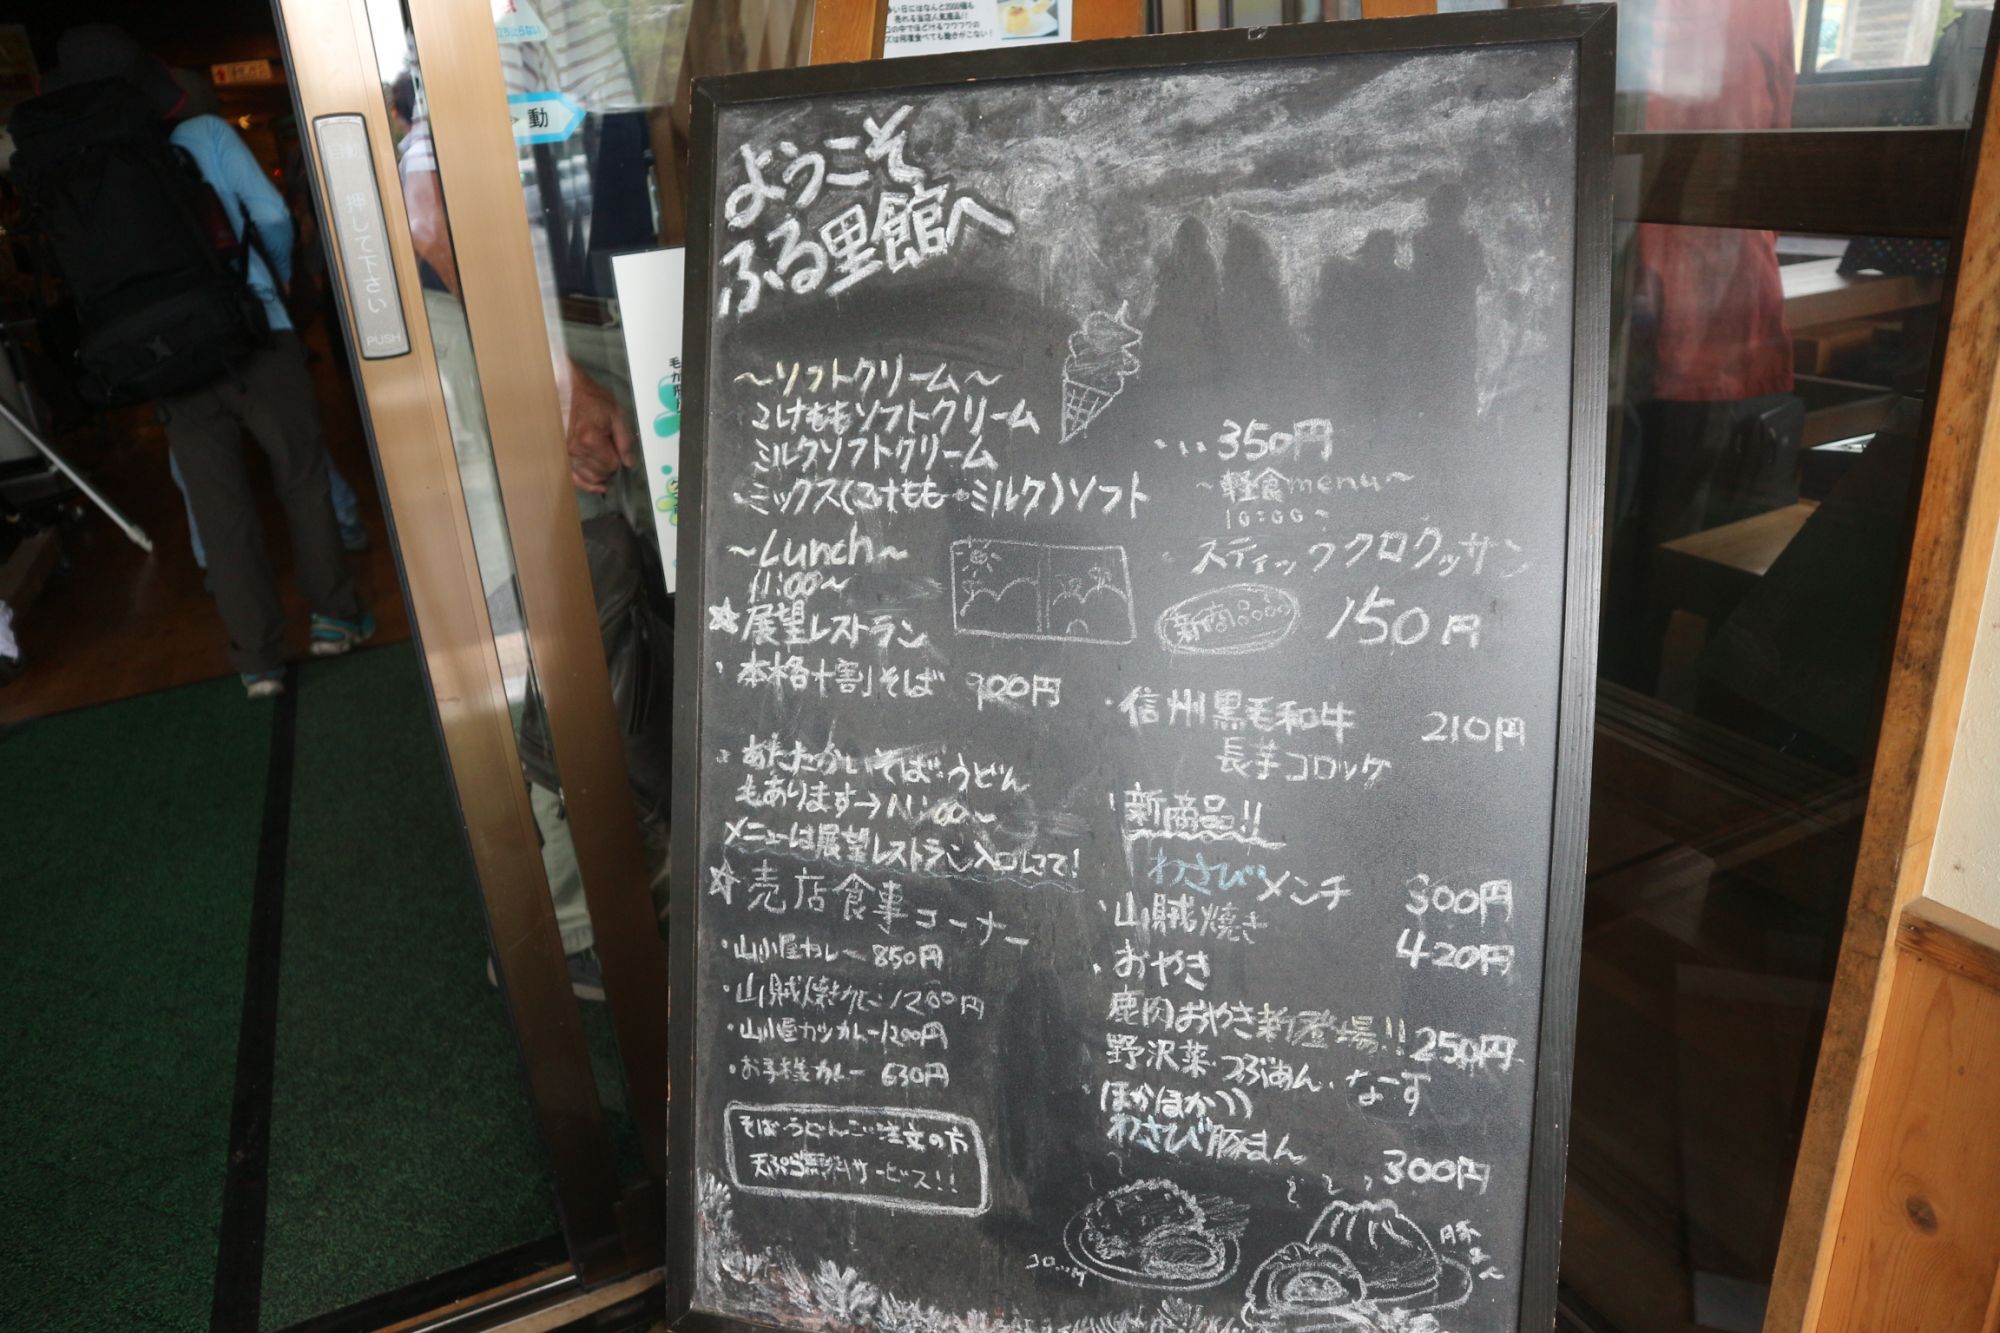 ようこそ
ふる里館へ
～ソフトクリーム～
こけももソフトクリーム
ミルクソフトクリーム
ミックス(こけもも・ミルク)ソフト
350円
～Lunch～
11:00～
☆展望レストラン
・本格十割そば 900円
・あたたかいそば・うどん
もあります→11:00～
メニューは展望レストラン入口にて!
☆売店食事コーナー
・山小屋カレー 850円
・山賊焼カレー1200円
・山小屋カツカレー1200円
・お子様カレー 630円
そば・うどんご注文の方
天ぷら無料サービス!!
～軽食menu～
10:00～
スティッククロワッサン
新商品 150円
・信州黒毛和牛 210円
長芋コロッケ
新商品!!
わさびメンチ 300円
・山賊焼き 420円
・おやき
鹿肉おやき新登場!! 250円
野沢菜・つぶあん・なす
・ほかほか
わさび豚まん 300円
コロッケ
豚まん
自動
押して下さい
PUSH
動